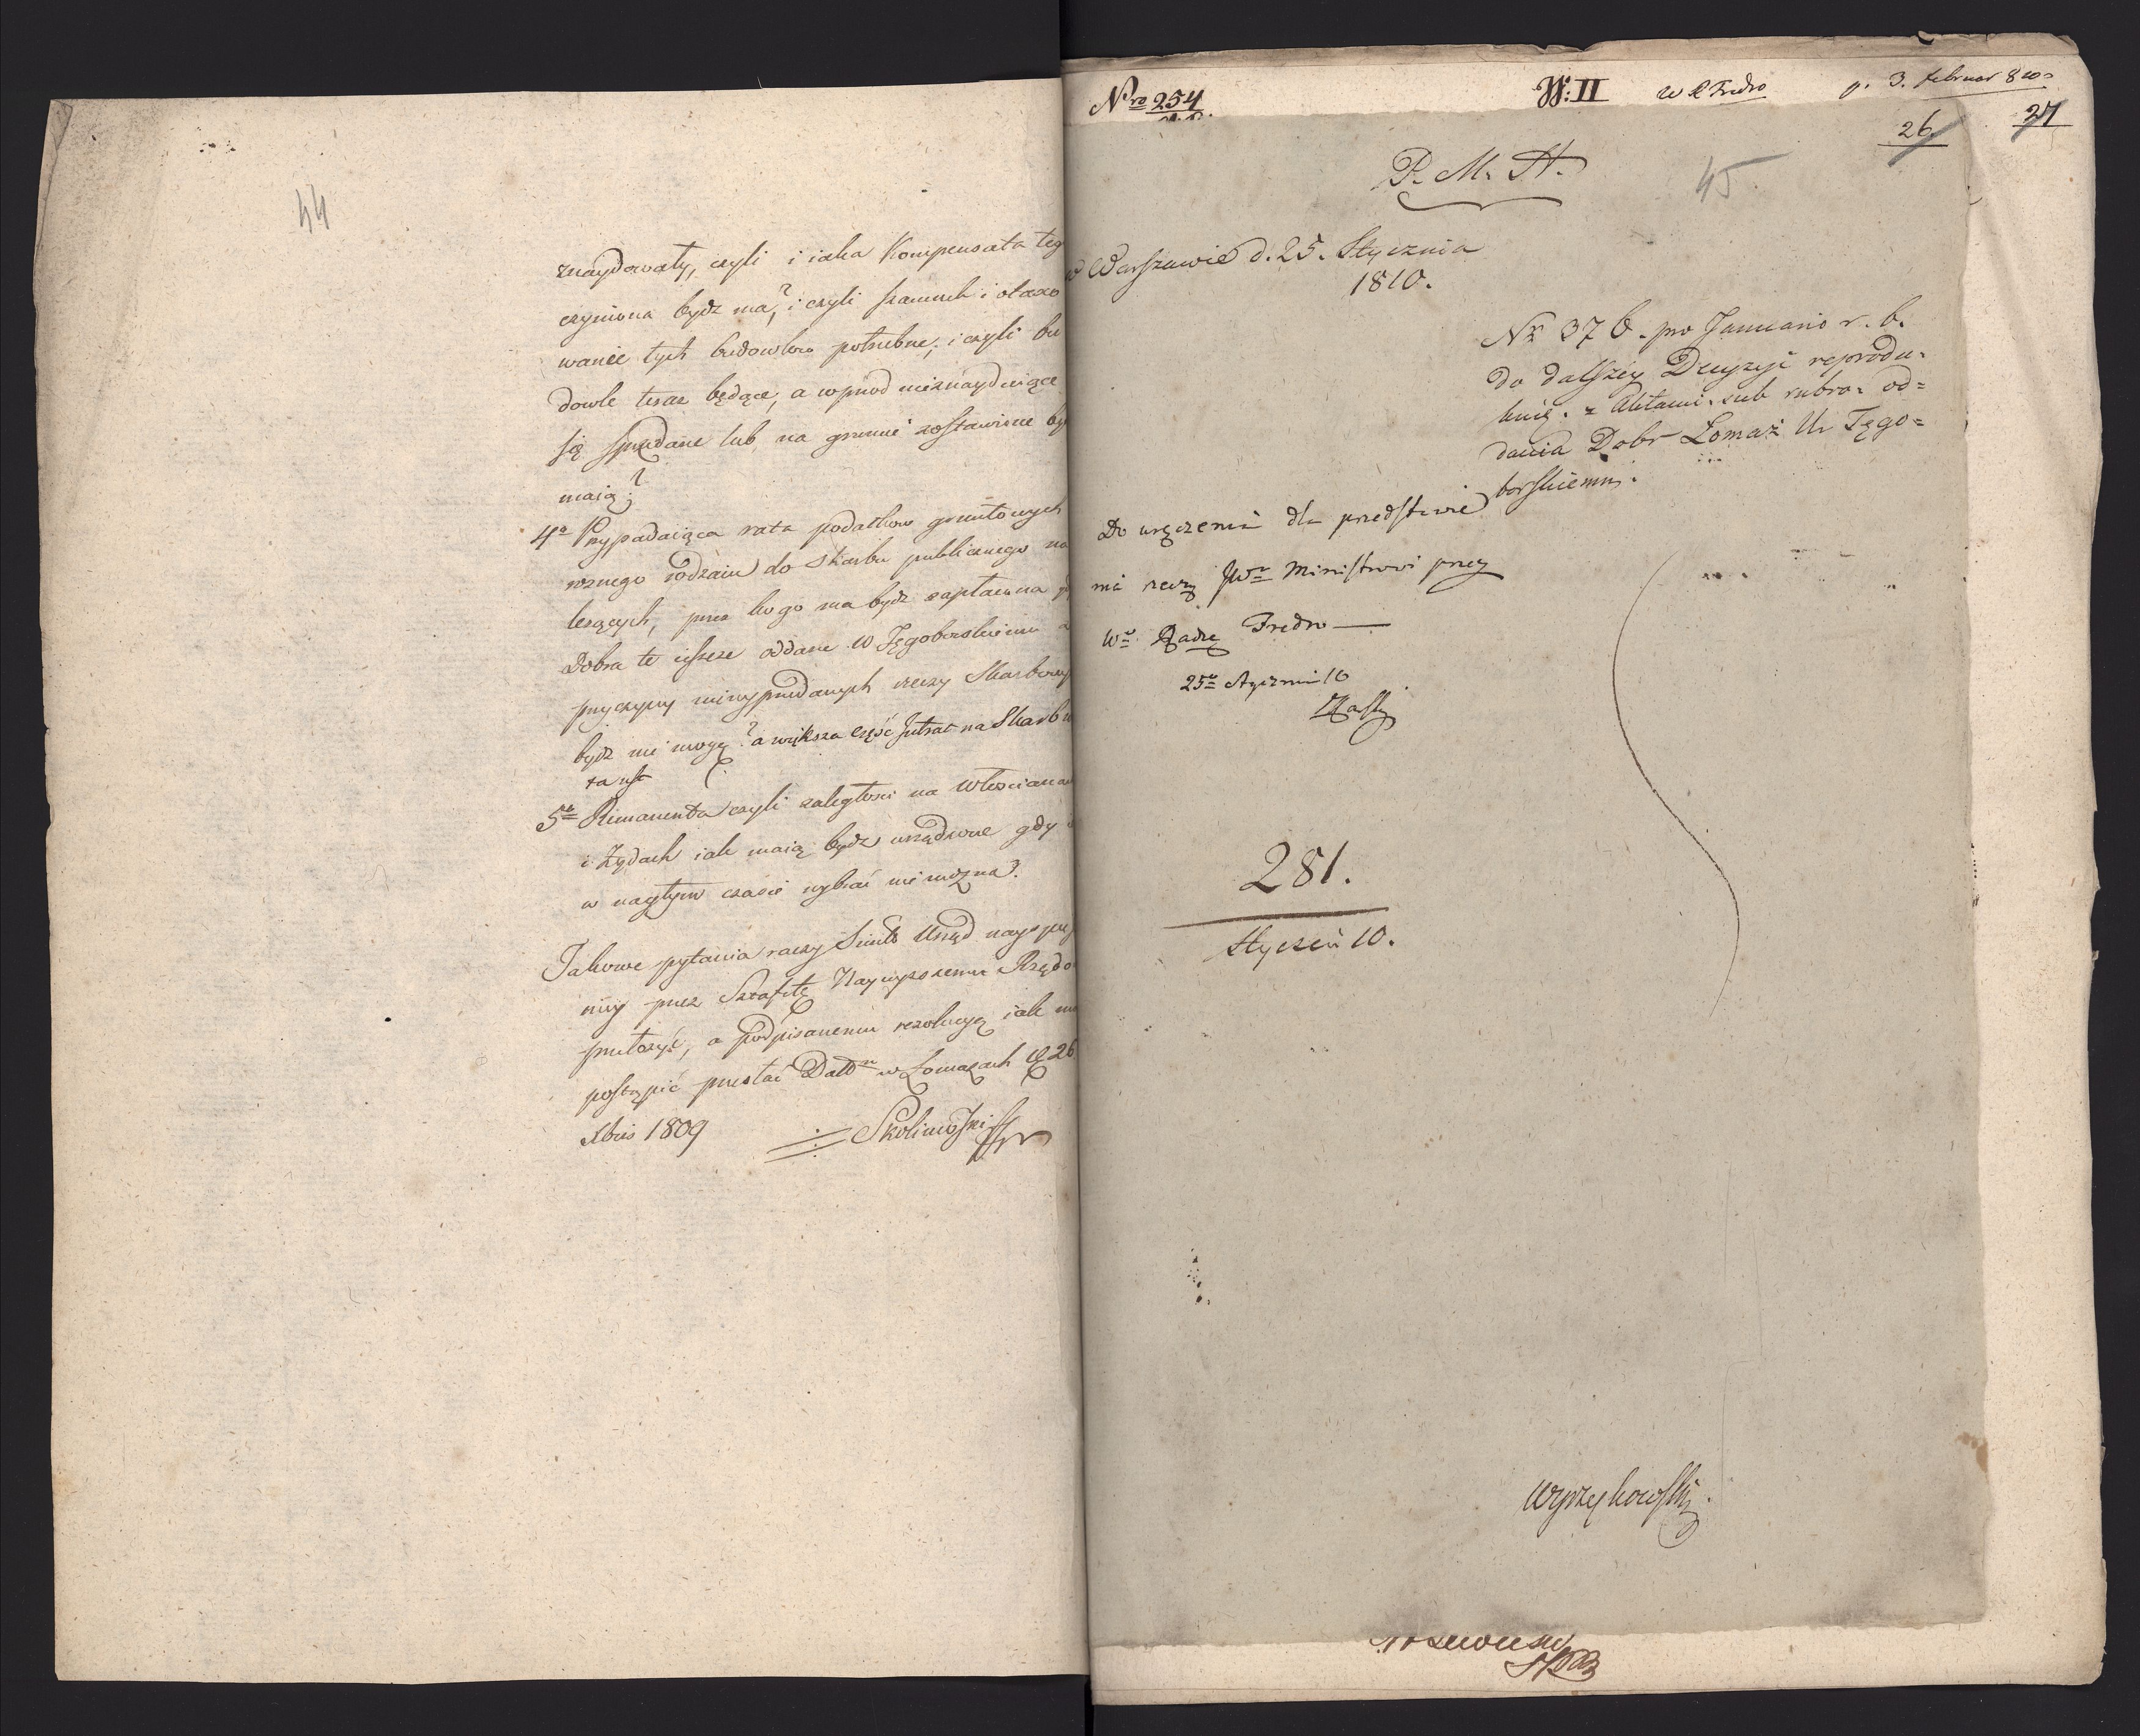 44
znaydowały, czyli i iaka Kompensata teg
czyniona bydź ma?, i czyli szacunek i otaxo
wanie tych budowlow potrzebne; i czyli bu
dowle teraz będące, a wprzod nieznayduiące
się sprzedane lub na gruncie zostawione by
maią?
4o Przypadaiąca rata podatkow gruntowych
roznego rodzaiu do Skarbu publicznego na
leżących, przez kogo ma bydź zapłacona g
Dobra te ieszcze oddane W Tęgoborskiemu
przyczyny niewyprzedanych rzeczy Skarbowy
bydź nie mogą? a większa część Intrat na Skarb
5to Remanenta czyli zaległosci na Włosciana
i Żydach iak maią bydź urządzone gdy
w nagłym czasie wybrać nie można?
Takowe pytania raczy Swietny Urząd nayspie
niey przez Sztafetę Naywyższemu Rządo
przełożyć, a podpisanemu rezolucyą iak
postąpić przesłać Datt w Łomazach d 26
Xbris 1809
Skolimoski
Nro 254
W: II
W R Fredro
p. 3. februar 810
26
27
P. M. S.
45.
w Warszawie d. 25. Stycznia
1810.
Nr 37 b. pro Januario r. b.
do dalszey Decyzyi reprodu-
kuię. z Aktami. sub rubro: od=
dania Dobr Łomaż Ur Tęgo=
borskiemu.
Do wręczenia dla przedstawie
nia rzeczy JWu Ministrowi przez
Wo Radzę Fredro —
25o Stycznia 10
281.
Styczeń 10.
Wyrzykowski.